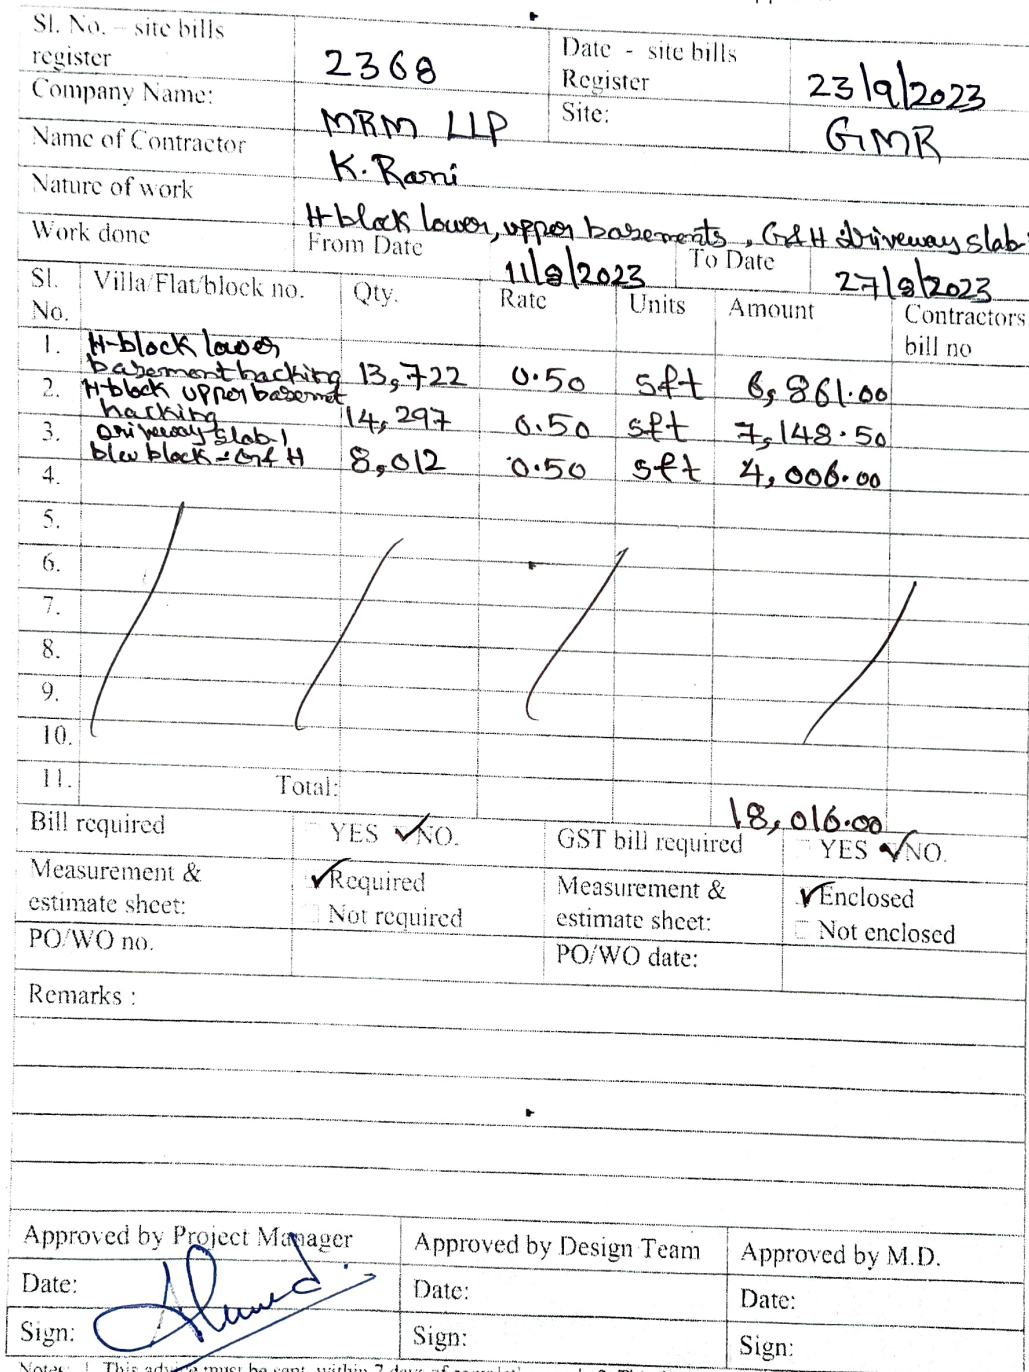 Sl. No. – site bills register 2368 Date - site bills Register 23/9/2023
Company Name: MRM LLP Site: GMR
Name of Contractor K. Rani
Nature of work H-block lower, upper basements, G&H driveway slab
Work done From Date 11/8/2023 To Date 27/8/2023
Sl. No. Villa/Flat/block no. Qty. Rate Units Amount Contractors bill no
1. H-block lower basement hacking 13,722 0.50 sft 6,861.00
2. H-block upper basemet hacking 14,297 0.50 sft 7,148.50
3. Driveway slab-1 blw block - G& H 8,012 0.50 sft 4,006.00
4.
5.
6.
7.
8.
9.
10.
11. Total: 18,016.00
Bill required YES ✓NO. GST bill required YES ✓NO.
Measurement & estimate sheet: ✓Required Not required Measurement & estimate sheet: ✓Enclosed Not enclosed
PO/WO no. PO/WO date:
Remarks :
Approved by Project Manager Approved by Design Team Approved by M.D.
Date: Date: Date:
Sign: Sign: Sign: